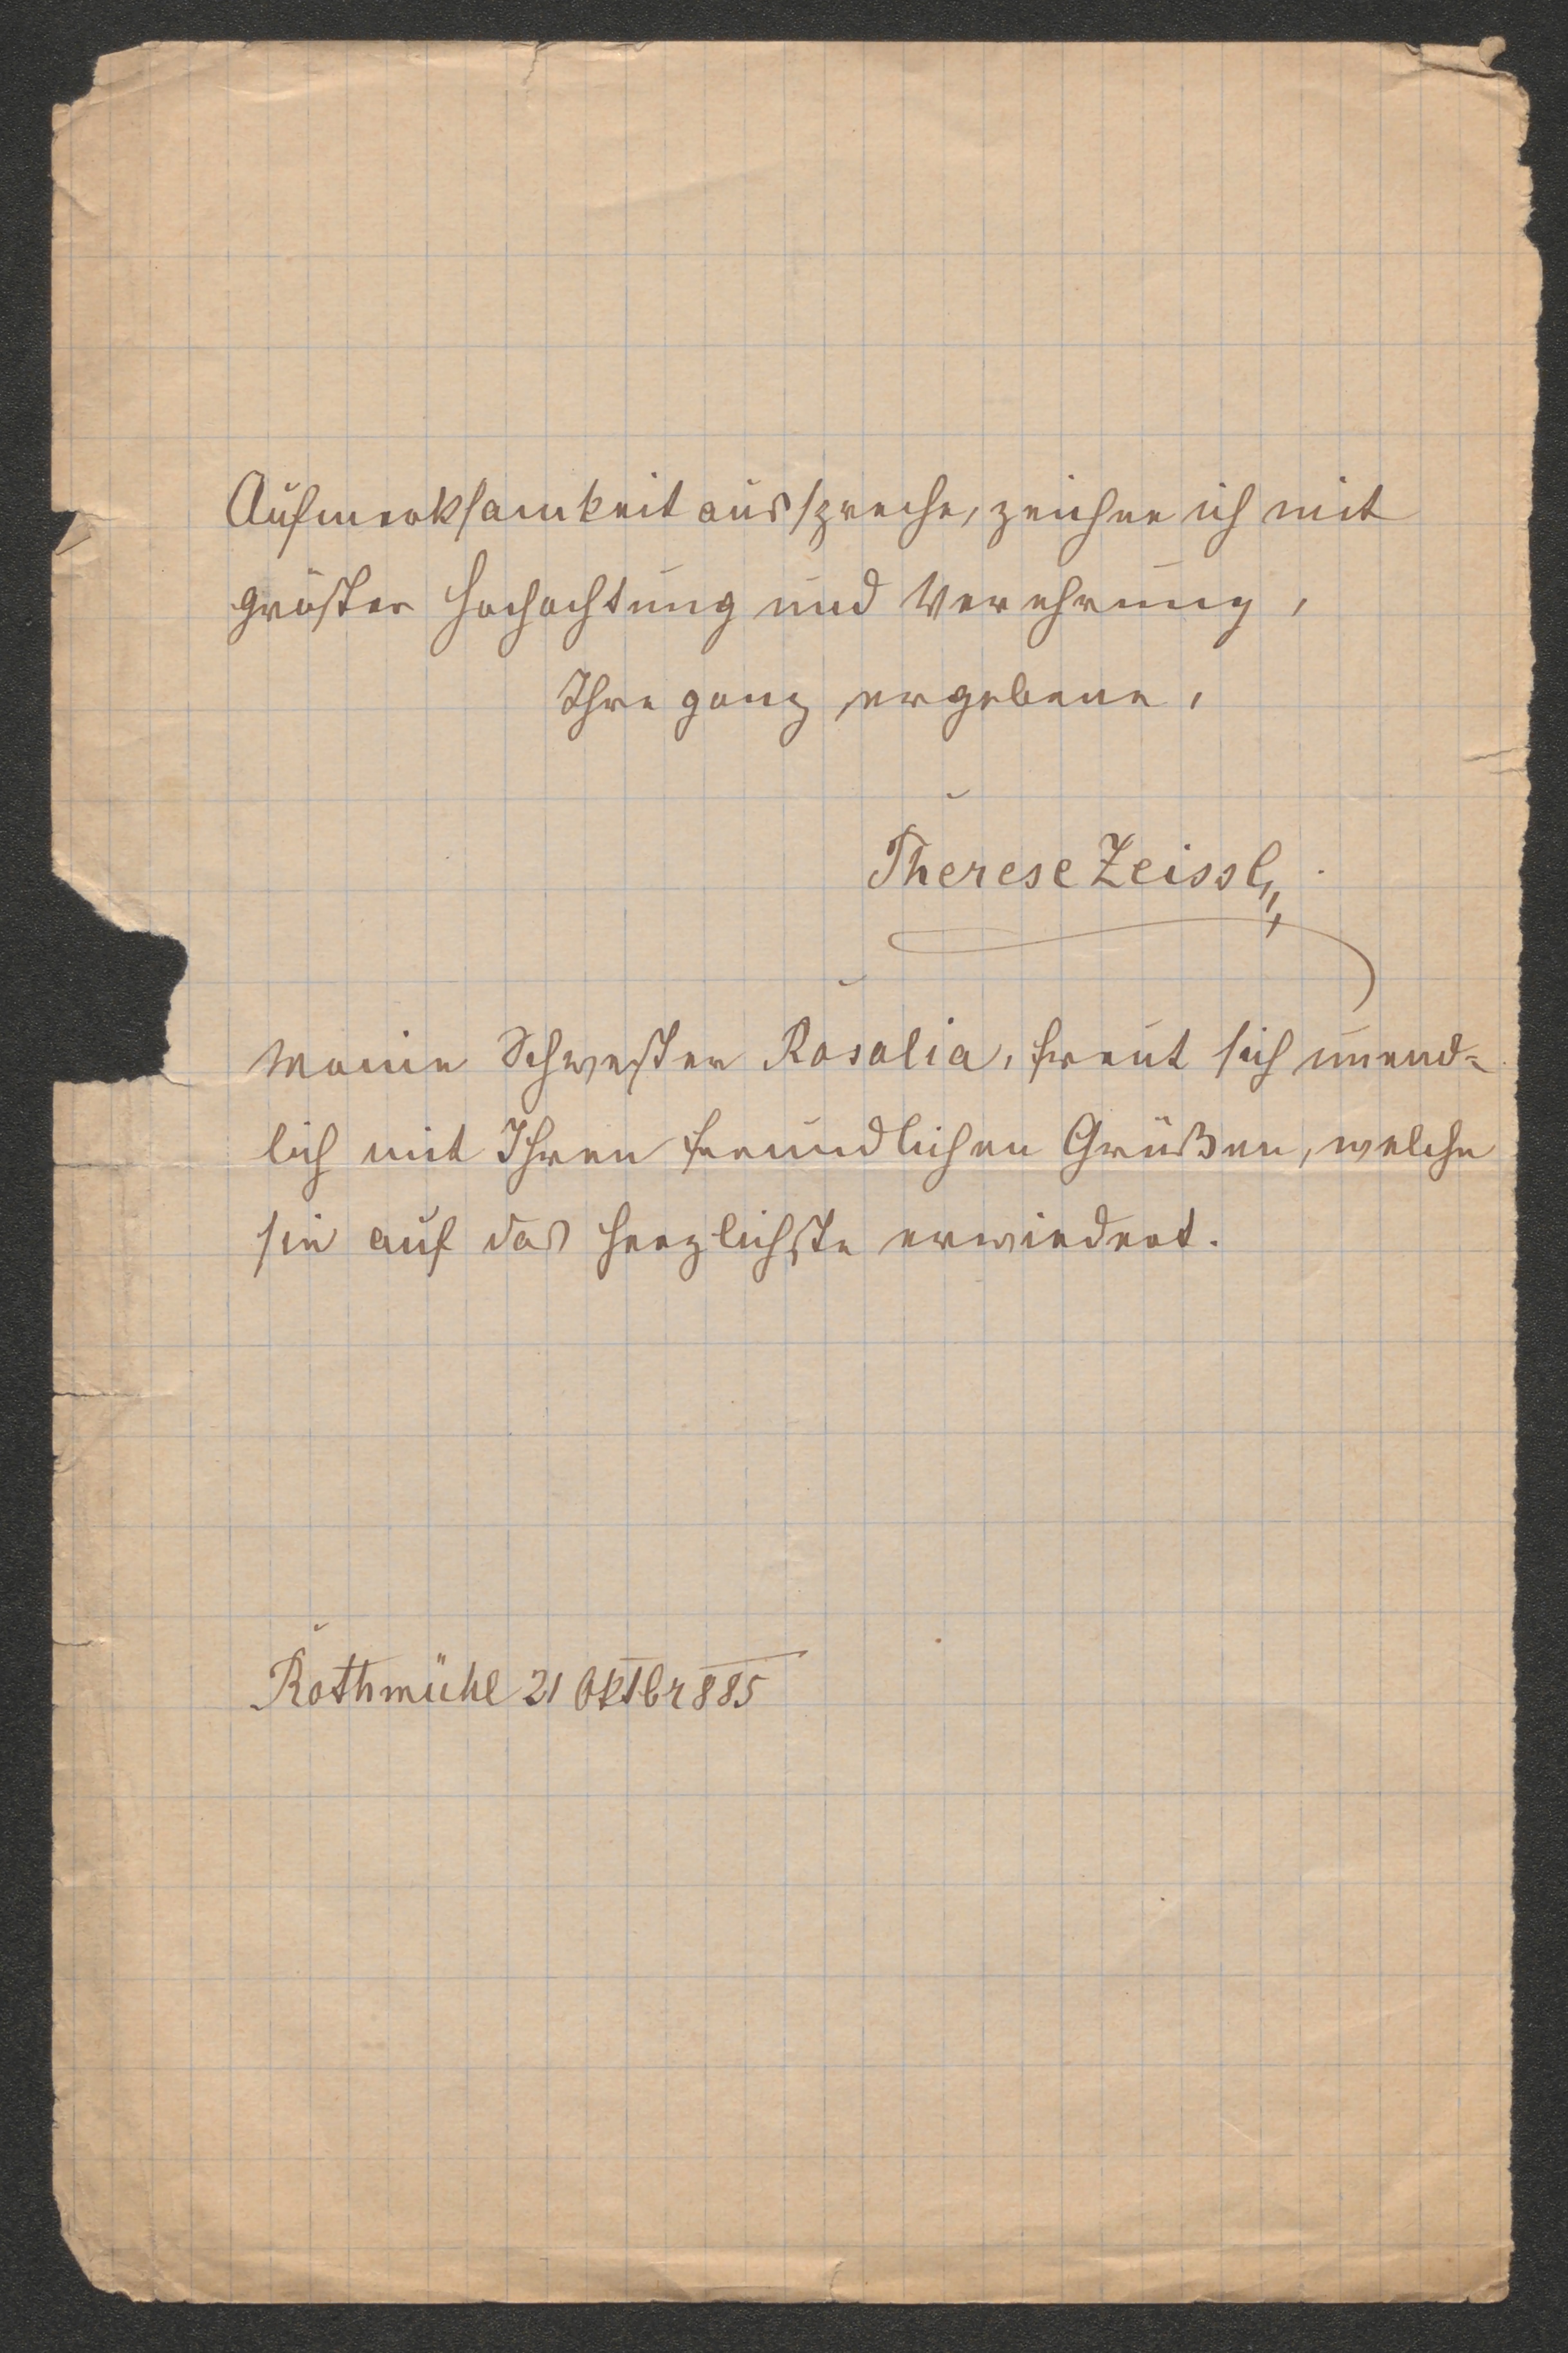 Aufmerksamkeit ausspreche, zeichne ich mit
gröster Hochachtung und Verehrung,
Ihre ganz ergebene,
Therese Zeissl
Meine Schwester Rosalia, freut sich unend=
lich mit Ihren freundlichen Grüßen, welche
sie auf das herzlichste erwiedert.
Rothmühl 21 Oktbr 885